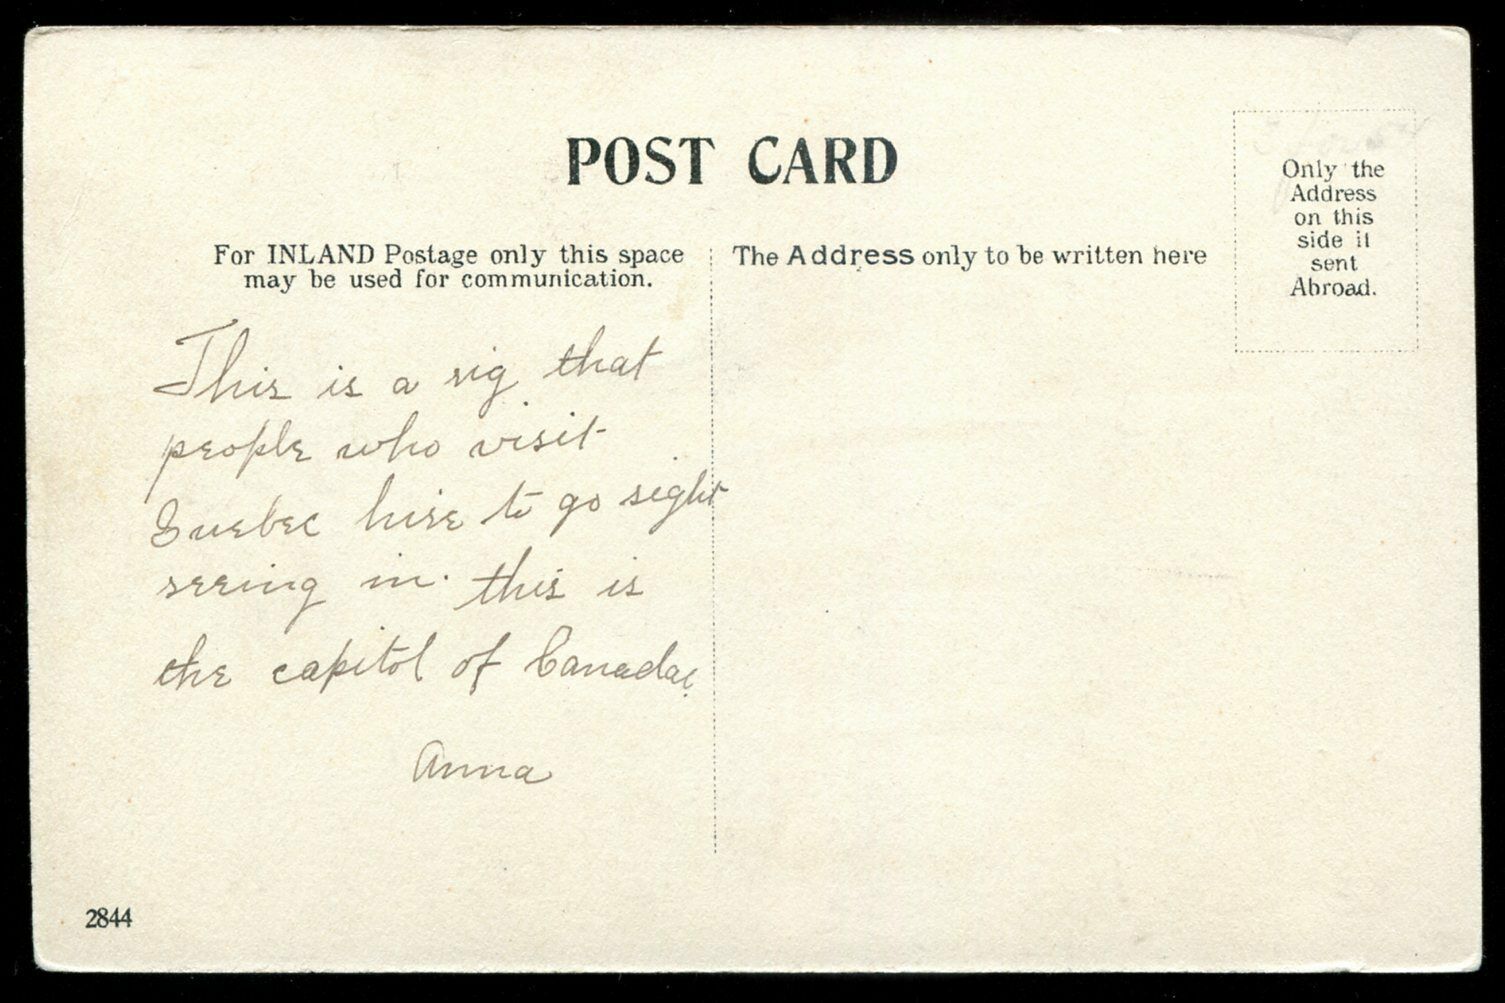 POST CARD
For INLAND Postage only this space
may be used for communication.
The Address only to be written here
Only the
Address
on this
side if
sent
Abroad.
This is a rig that
people who visit
Quebec hire to go sight
seeing in. this is
the capitol of Canada.
Anna
2844